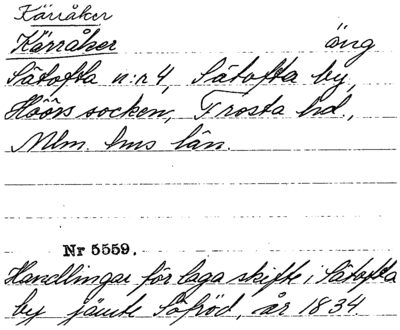 Kärråker
Kärråker äng
Sätofta n:r 4, Sätofta by,
Höörs socken, Frosta hd.,
Mlm. hus län.
Nr 5559.
Handlingar för laga skifte i Sätofta
by jämte Såröd, år 1834.